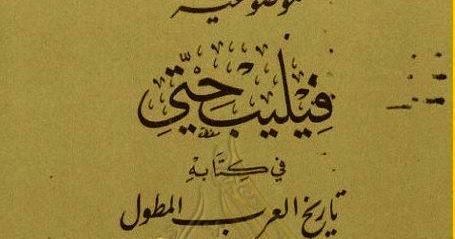 موضوعية
فِيْلِيبْ حِتّي
في كِتَابِهْ
تاريخ العرب المطول